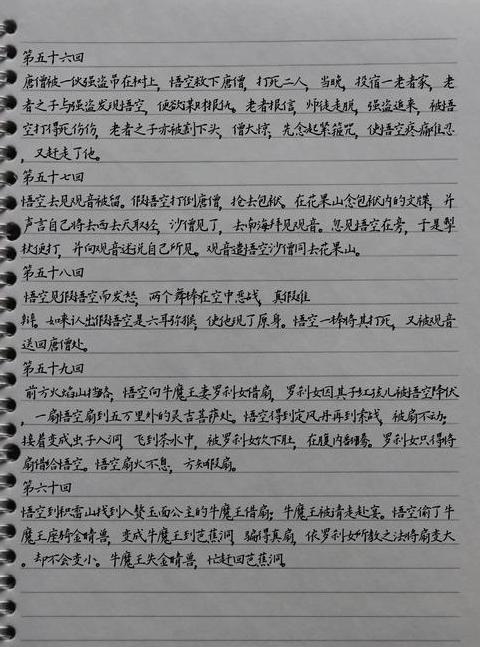 第五十六回
唐僧被一伙强盗吊在树上，悟空救下唐僧，打死二人，当晚，投宿一老者家，老
者之子与强盗发现悟空，便欲谋财报仇。老者报信，师徒走脱，强盗追来，被悟
空打得死伤伤，老者之子亦被割下头，僧大惊，先念起紧箍咒，使悟空疼痛难忍
，又赶走了他。
第五十七回
悟空去见观音被留。假悟空打倒唐僧，抢去包袱。在花果山念包袱内的文牒，并
声言自己将去西去天取经，沙僧见了，去南海拜见观音。忽见悟空在旁，于是掣
杖便打，并向观音述说自己所见。观音遣悟空沙僧同去花果山。
第五十八回
悟空见假悟空而发怒，两个舞棒在空中恶战，真假难
辩。如来认出假悟空是六耳猕猴，使他现了原身。悟空一棒将其打死，又被观音
送回唐僧处。
第五十九回
前方火焰山挡路，悟空向牛魔王妻罗刹女借扇，罗刹女因其子红孩儿被悟空降伏
，一扇悟空扇到五万里外的灵吉菩萨处。悟空得到定风丹再到索战，被扇不动；
接着变成虫子入洞，飞到茶水中，被罗刹女饮下肚，在腹内翻腾。罗刹女只得将
扇借给悟空。悟空扇火不息，方知假扇。
第六十回
悟空到积雷山找到入赘玉面公主的牛魔王借扇；牛魔王被请走赴宴。悟空偷了牛
魔王座骑金睛兽，变成牛魔王到芭蕉洞，骗得真扇，依罗刹女所教之法将扇变大
。却不会变小。牛魔王失金睛兽，忙赶回芭蕉洞。